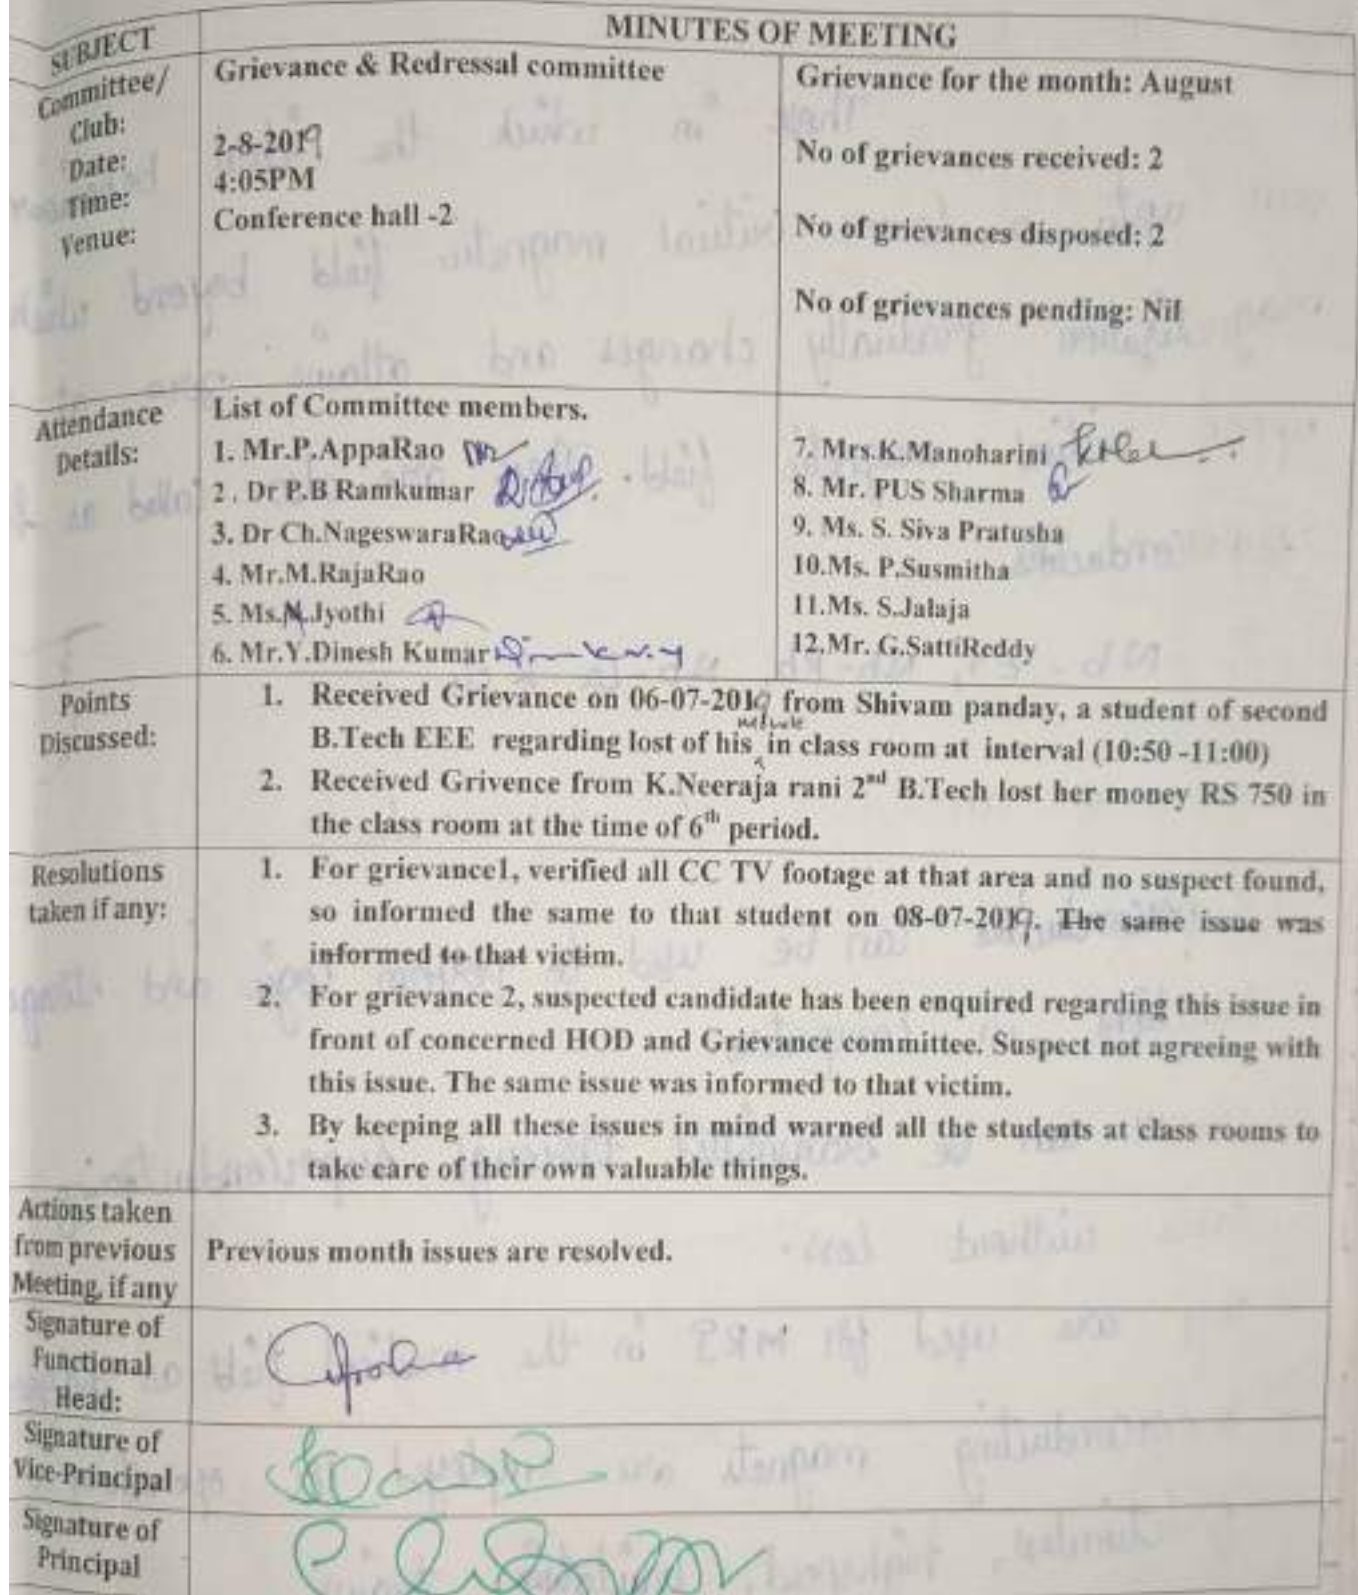 SUBJECT
MINUTES OF MEETING
Committee/
Club:
Date:
Time:
Venue:
Grievance & Redressal committee
2-8-2019
4:05PM
Conference hall -2
Grievance for the month: August
No of grievances received: 2
No of grievances disposed: 2
No of grievances pending: Nil
Attendance
Details:
List of Committee members.
1. Mr.P.AppaRao
2 . Dr P.B Ramkumar
3. Dr Ch.NageswaraRao
4. Mr.M.RajaRao
5. Ms.N.Jyothi
6. Mr.Y.Dinesh Kumar
7. Mrs.K.Manoharini
8. Mr. PUS Sharma
9. Ms. S. Siva Pratusha
10.Ms. P.Susmitha
11.Ms. S.Jalaja
12.Mr. G.SattiReddy
Points
Discussed:
1. Received Grievance on 06-07-2019 from Shivam panday, a student of second
B.Tech EEE regarding lost of his in class room at interval (10:50 -11:00)
2. Received Grivence from K.Neeraja rani 2nd B.Tech lost her money RS 750 in
the class room at the time of 6th period.
Resolutions
taken if any:
1. For grievance1, verified all CC TV footage at that area and no suspect found,
so informed the same to that student on 08-07-2019. The same issue was
informed to that victim.
2. For grievance 2, suspected candidate has been enquired regarding this issue in
front of concerned HOD and Grievance committee. Suspect not agreeing with
this issue. The same issue was informed to that victim.
3. By keeping all these issues in mind warned all the students at class rooms to
take care of their own valuable things.
Actions taken
from previous
Meeting, if any
Previous month issues are resolved.
Signature of
Functional
Head:
Signature of
Vice-Principal
Signature of
Principal